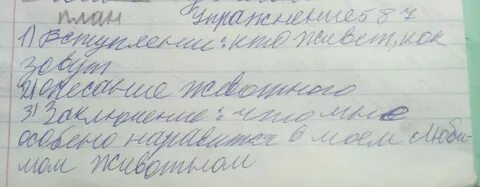 план Упражнение 587
1) Вступление: кто живет, как
зовут
2) Описание животного
3) Заключение: что мне
особено наравится в моем люби-
мом животном